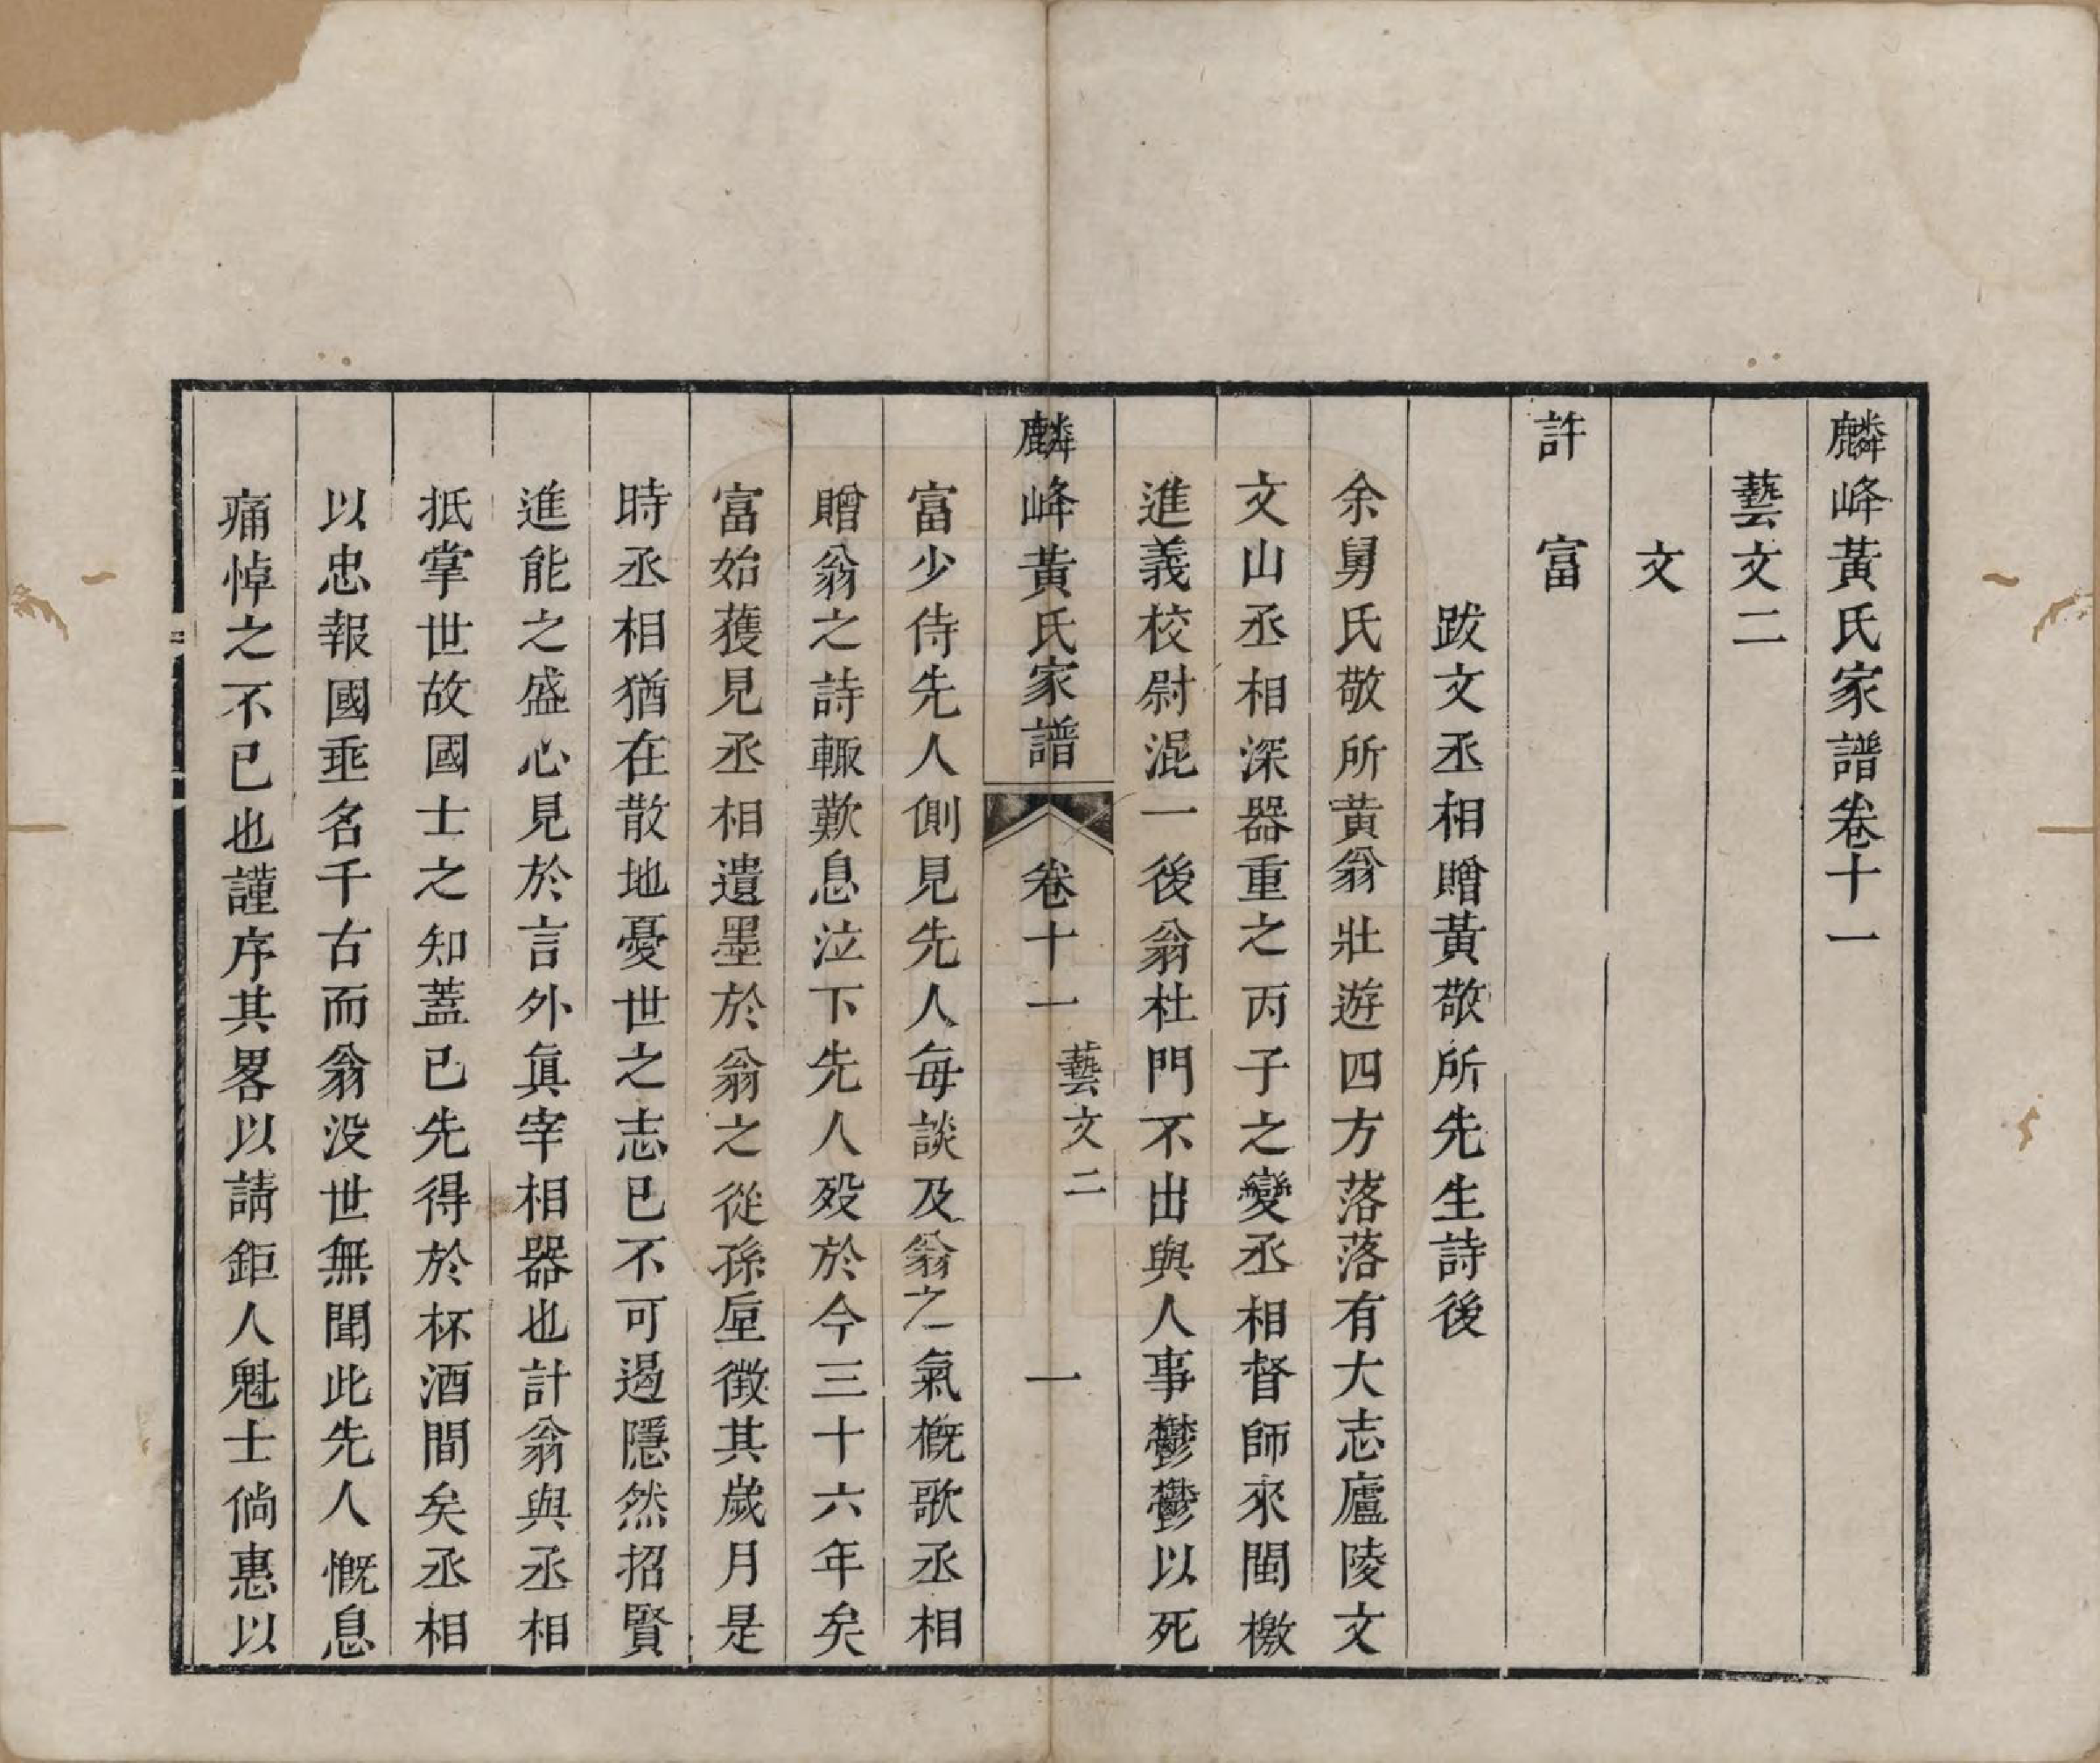 麟峰黃氏家譜卷十一
藝文二
文
許富
跋文丞相贈黃敬所先生詩後
余舅氏敬所黃翁壯遊四方落落有大志廬陵文
文山丞相深器重之丙子之變丞相督師來閩檄
進義校尉混一後翁杜門不出與人事鬱鬱以死
麟峰黃氏家譜 卷十一 藝文二 一
富少侍先人側見先人每談及翁之氣概歌丞相
贈翁之詩輒歎息泣下先人歿於今三十六年矣
富始獲見丞相遺墨於翁之從孫垕徵其歲月是
時丞相猶在散地憂世之志已不可遏隱然招賢
進能之盛心見於言外眞宰相器也計翁與丞相
抵掌世故國士之知蓋已先得於杯酒間矣丞相
以忠報國垂名千古而翁没世無聞此先人慨息
痛悼之不已也謹序其畧以請鉅人魁士倘惠以